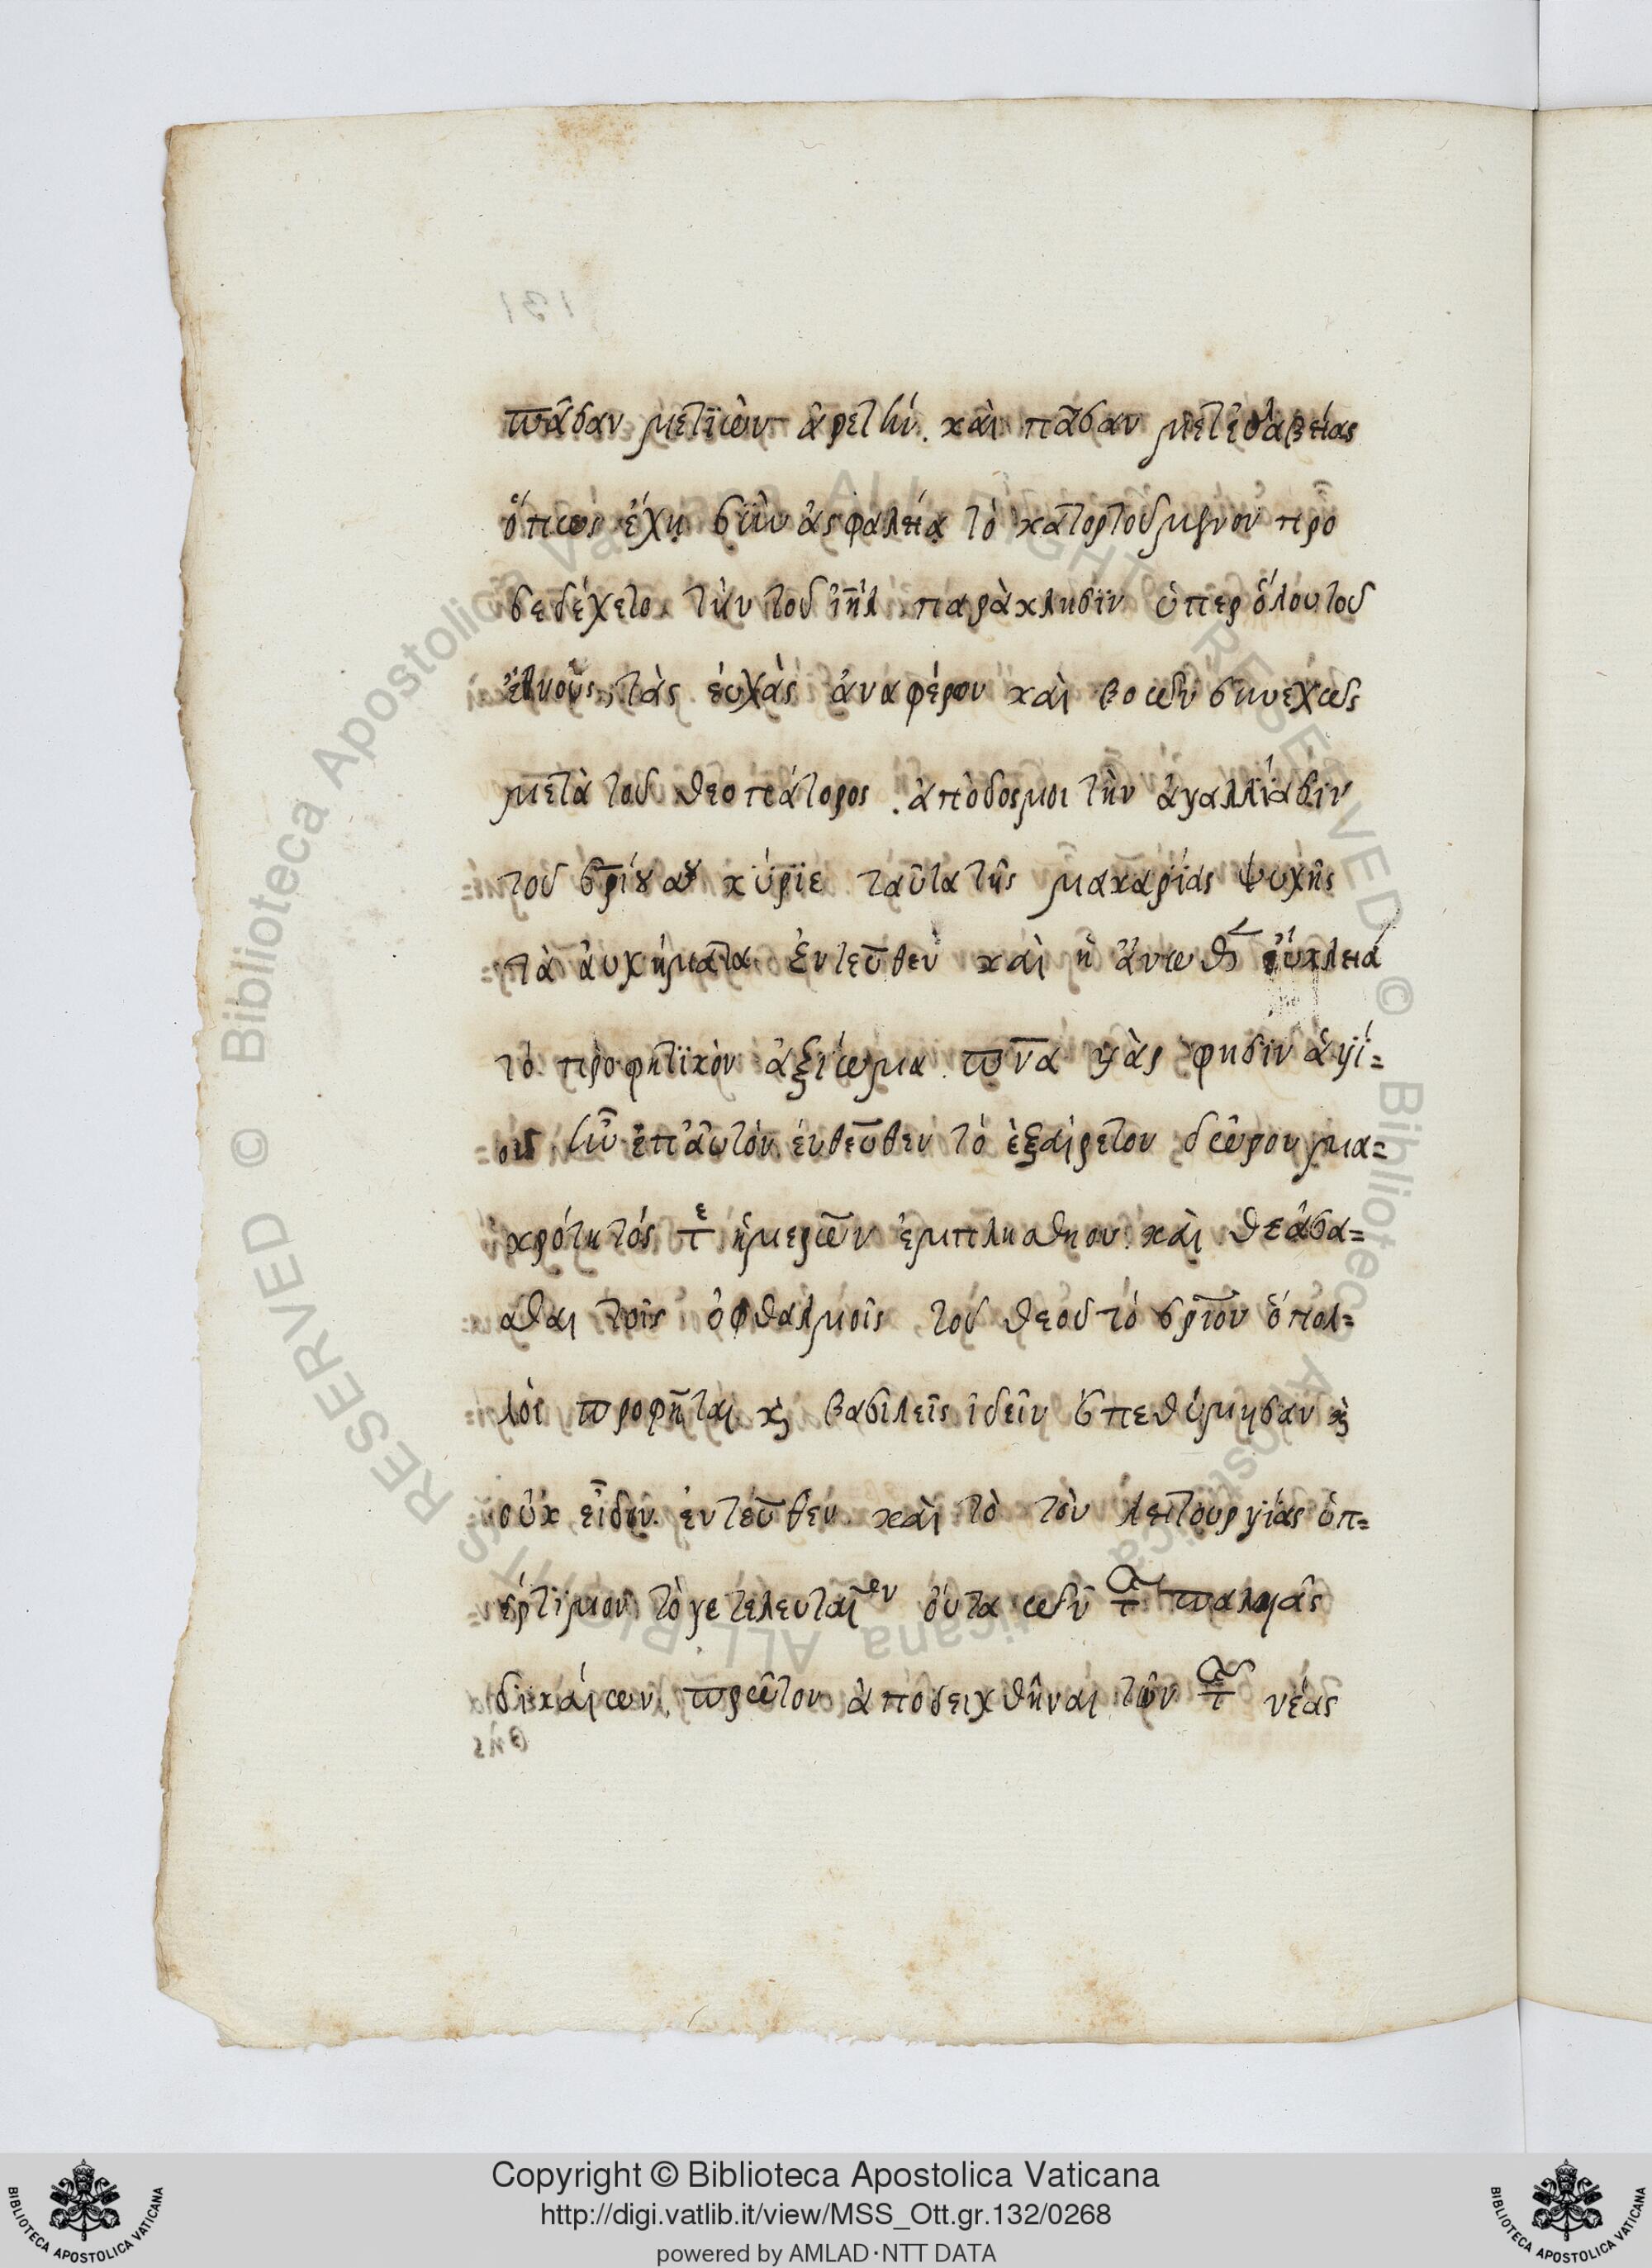 πᾶσαν μετϊὼν ἀρετὴν. καὶ πᾶσαν μετ εὐλαβείας
ὅπως ἔχῃ σὺν ἀσφαλείᾳ τὸ κατορτούμενον προ
σεδέχετο τὴν τοῦ ἰηλ παράκλησϊν ὑπερ ὅλου τοῦ
ἔτνους, τὰς ἐυχὰς ἀναφέρον καὶ βοῶν συνεχῶς
μετὰ τοῦ θεοπάτορος. ἀπόδοσμοι τὴν ἀγαλλΐασϊν
τοῦ σρίου σου κύρϊε ταῦτα τῆς μακαρΐας ψυχῆς
τὰ ἀυχήματα ἐντεῦθεν καὶ ἡ ἄνωθεν εὔκλεια
τὸ προφητϊκὸν ἀξίωμα. πνα γὰρ φησϊν ἁγί=
ον ἦν ἐπ ἀυτὸν ἐνθεῦθεν τὸ ἐξαίρετον δῶρον μα=
κρότητός τε ἡμερῶν ἐμπλησθηον. καὶ θεάσα=
σθαι τοῖς ὀφθαλμοῖς τοῦ θεοῦ τὸ σρῖον ὁπολ=
λοὶ προφῆται καὶ βασιλεῖς ἰδεῖν ἐπεθύμησαν καὶ
οὐκ εἶδον. ἐντεῦθεν καὶ τὸ τὸν λειτουργϊάς ὑπ=
έρτϊμον τό γε τελευταῖον οὕτα ὧν τ παλαιᾶς
δικαίων. πρῶτον ἀποδειχθῆναι τῶν τ νέας